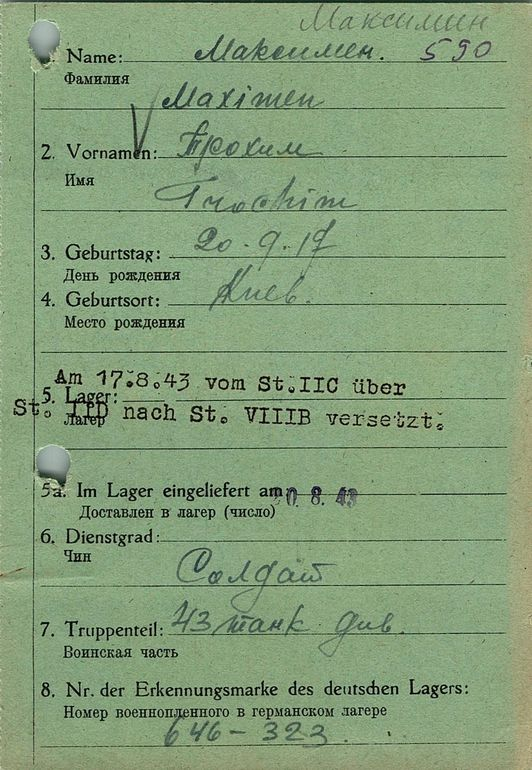 Максимин
1. Name: Максимен. 590
Фамилия
Maximen
2. Vornamen: Трохим
Имя
Trochim
3. Geburtstag: 20.9.17
День рождения
4. Geburtsort: Киев.
Место рождения
Am 17.8.43 vom St.IIC über
5. Lager:
St. IID nach St. VIIIB versetzt.
Лагер
5a. Im Lager eingeliefert am 20 8.43
Доставлен в лагер (число)
6. Dienstgrad:
Чин
Солдат
7. Truppenteil: 43 танк див.
Воинская часть
8. Nr. der Erkennungsmarke des deutschen Lagers:
Номер военнопленного в германском лагере
646-323.